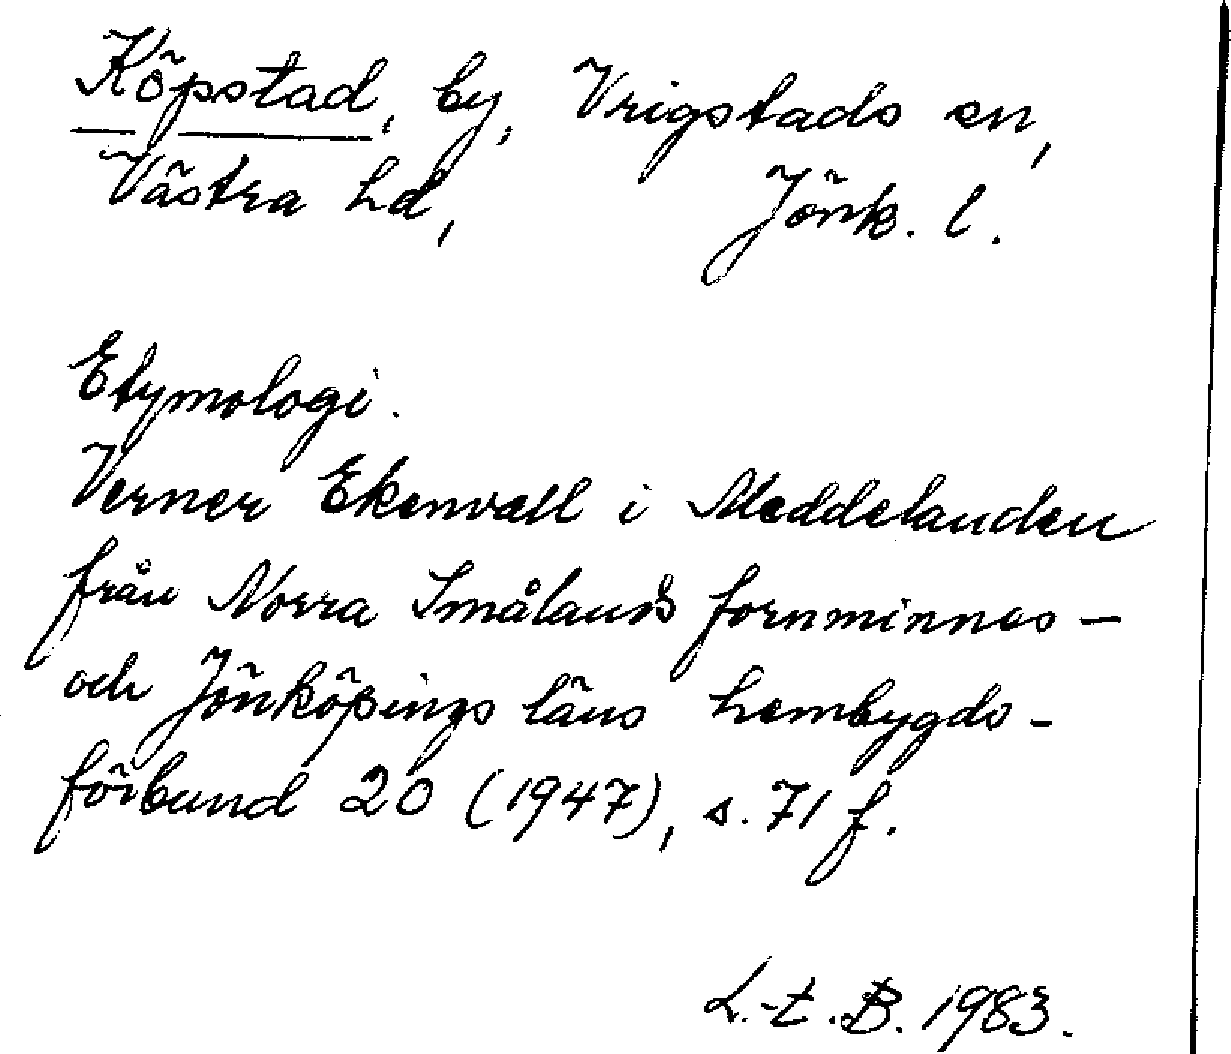 Köpstad, by, Vrigstads sn,
Västra hd, Jönk. l.
Etymologi.
Verner Ekenvall i Meddelanden
från Norra Smålands fornminnes-
och Jönköpings läns hembygds-
förbund 20 (1947), s. 71 f.
L.-t. B. 1983.